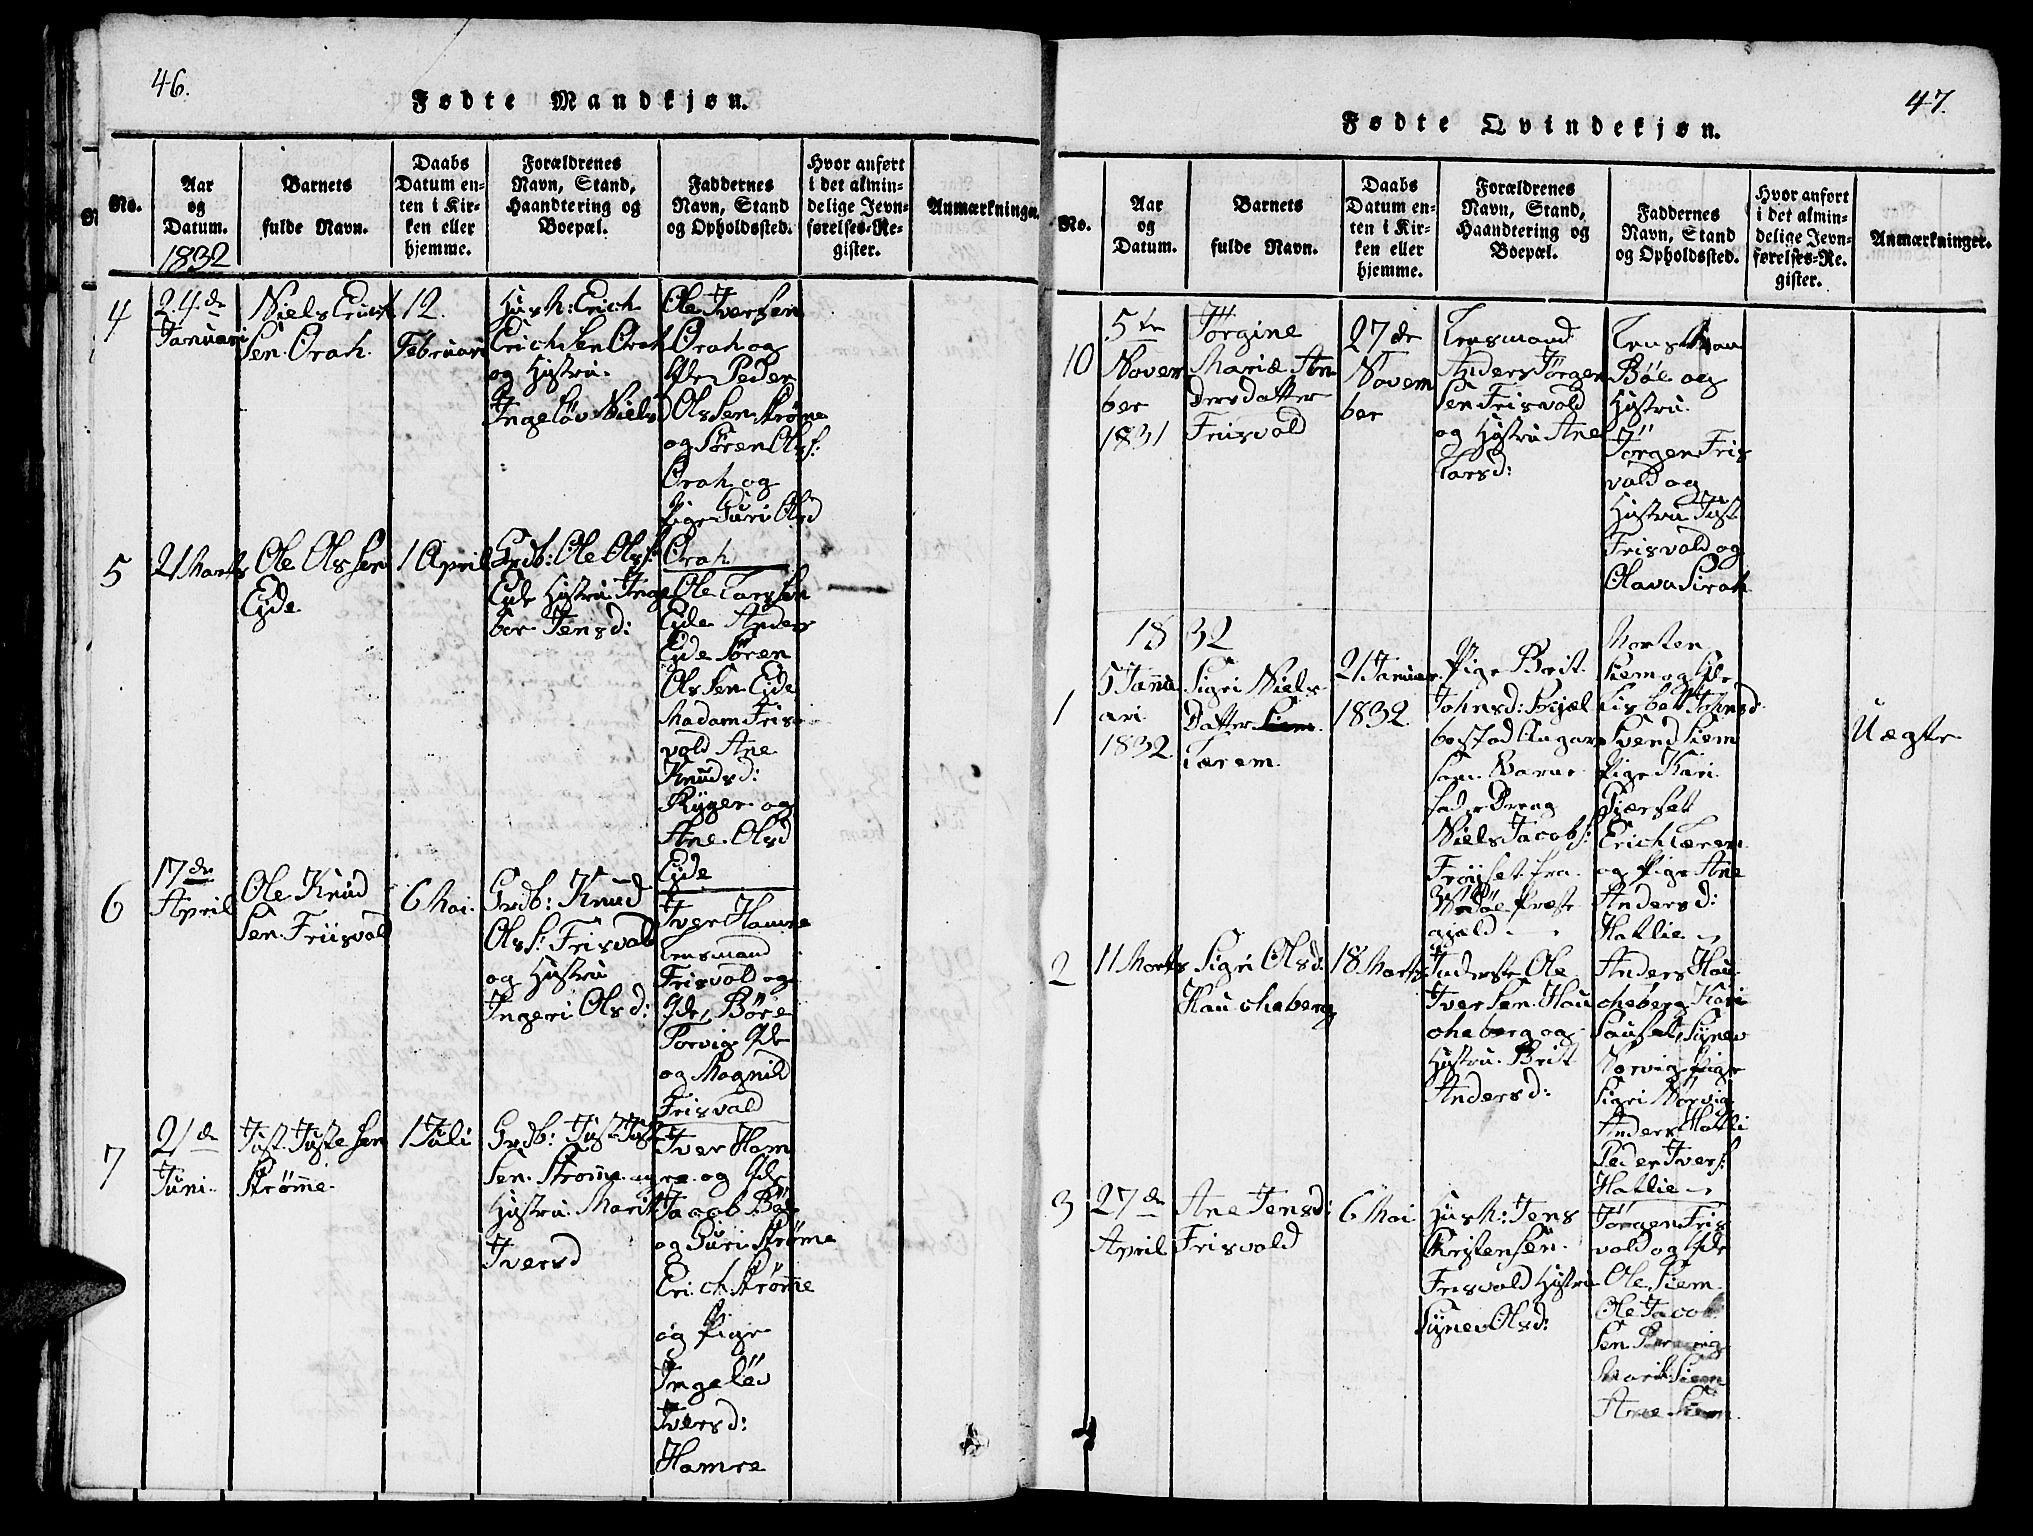 46.
Fødte Mandkjøn.
No.
Aar
og
Datum.
1832
Barnets
fulde Navn.
Daabs
Datum en-
ten i Kir-
ken eller
hjemme.
Forældrenes
Navn, Stand,
Haandtering og
Boepæl.
Faddernes
Navn, Stand
og Opholdssted.
Hvor anført
i det almin-
delige Jevn-
førelses-Re-
gister.
Anmærkninger.
4
24de
Januari
Niels Erich
Sen Orah
12
Februari
Husm: Erich
Erichsen Orah
og Hustru
Ingeløv Nielsd
Ole Iversen
Orah og
Peder
Olssen Strøme
og Søren Olss:
Orah og
Pige Guri Olsd
Orah
5
21 Marts
Ole Olssen
Eide
1 April
Grdb: Ole Olss:
Eide Hustru Inge
bor Jensd:
Ole Larssen
Eide Anders
Eide Søren
Olssen Eide
Madam Fris
vold Ane
Knudsd:
Ryger og
Ane Olsd
Eide
6
17de
April
Ole Knud
Sen Friisvold
6 Mai
Grdb: Knud
Olss: Frisvold
og Hustru
Ingeri Olsd:
Iver Hamre
Lensmand
Frisvold og
Børe
Torvig
og Magnild
Frisvold
7
21de
Juni
Just Justesen
Strøm̄e
1 Juli
Grdb: Just Just
Sen Strøm̄e og
Hustru Marit
Iversd
Iver Ham
re og
Jacob Böe
og Guri Strøme
Erich Strøm̄e
og Pige
Ingeløv
Iversd:
Hamre
47.
Fødte Qvindekjøn.
No.
Aar
og
Datum.
Barnets
fulde Navn.
Daabs
Datum en-
ten i Kir-
ken eller
hjemme.
Forældrenes
Navn, Stand,
Haandtering og
Boepæl.
Faddernes
Navn, Stand
og Opholdssted.
Hvor anført
i det almin-
delige Jevn-
førelses-Re-
gister.
Anmærkninger.
10
5te
Novem
ber
1831
Jørgine
Mariæ An
dersdatter
Frisvold
27de
Novem
ber
Lensmand
Anders Jørgen
Sen Frisvold
og Hustru Ane
Larsd:
Bøe og
Hustru
Jørgen Fris
vold og
Hustru Just
Frisvold og
Olava Sirah
1832
1
5 Janu
ari
1832
Sigri Niels
Datter
Tærem
21 Januar
1832
Pige Brit
Johnsd:
Barne
fader Dreng
Niels Jacobs:
Frøiset fra
Præste
gjæld
Morten
Siem og
Lisbet Johnsd
Svend Siem
Pige Kari
Gjerset
Erich Tærem
og Pige Ane
Andersd:
Hatlie
Uægte
2
11 Marts
Sigri Olsd:
Hauchaberg
18 Marts
Inderste Ole
Iversen Hau
chaberg og
Hustru Brit
Andersd:
Anders Hau
chaberg Kari
Synev
Norvig Pige
Sigri Norvig
Anders Hatli
Peder Ivers:
Hatlie
3
27de
April
Ane Jensd:
Frisvold
6 Mai
Husm: Jens
Kristensen
Frisvold Hustru
Synev Olsd:
Jørgen Fris
vold og
Ole Siem
Ole Jacob
Sen
Marit Siem
Ane Siem